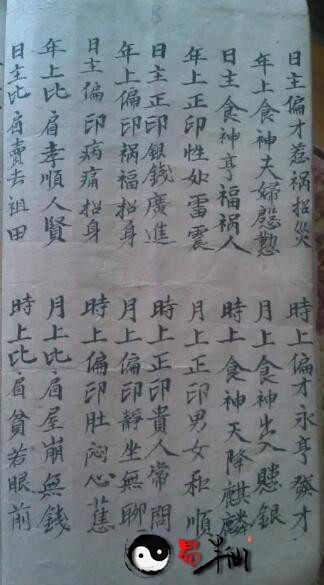 日主偏才惹祸招災
時上偏才永亨發才
年上食神夫婦慇懃
月上食神出入銀
日主食神亨福祸人
時上食神天降麒麟
年上正印性如雷震
月上正印男女和順
日主正印銀錢廣進
時上正印貴人常問
年上偏印祸福招身
月上偏印靜坐無聊
日主偏印病痛招身
時上偏印肚闷心蕉
年上比肩孝順人賢
月上比肩屋崩無錢
日主比肩賣去祖田
時上比肩貧苦眼前